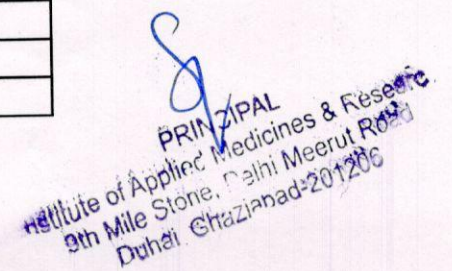 PRINCIPAL
Institute of Applied Medicines & Researc
9th Mile Stone, Delhi Meerut Road
Duhai Ghaziabad-201206